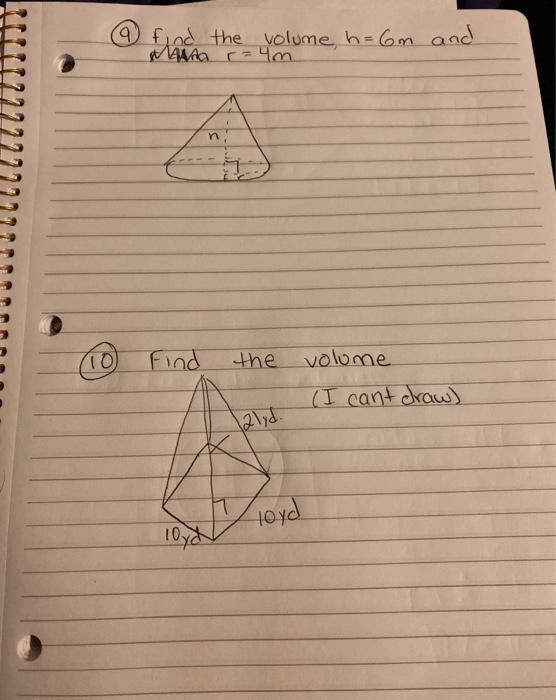 9 find the volume, h = 6m and
r = 4m
h
r
10 Find the volume
(I cant draw)
21yd.
10yd
10yd